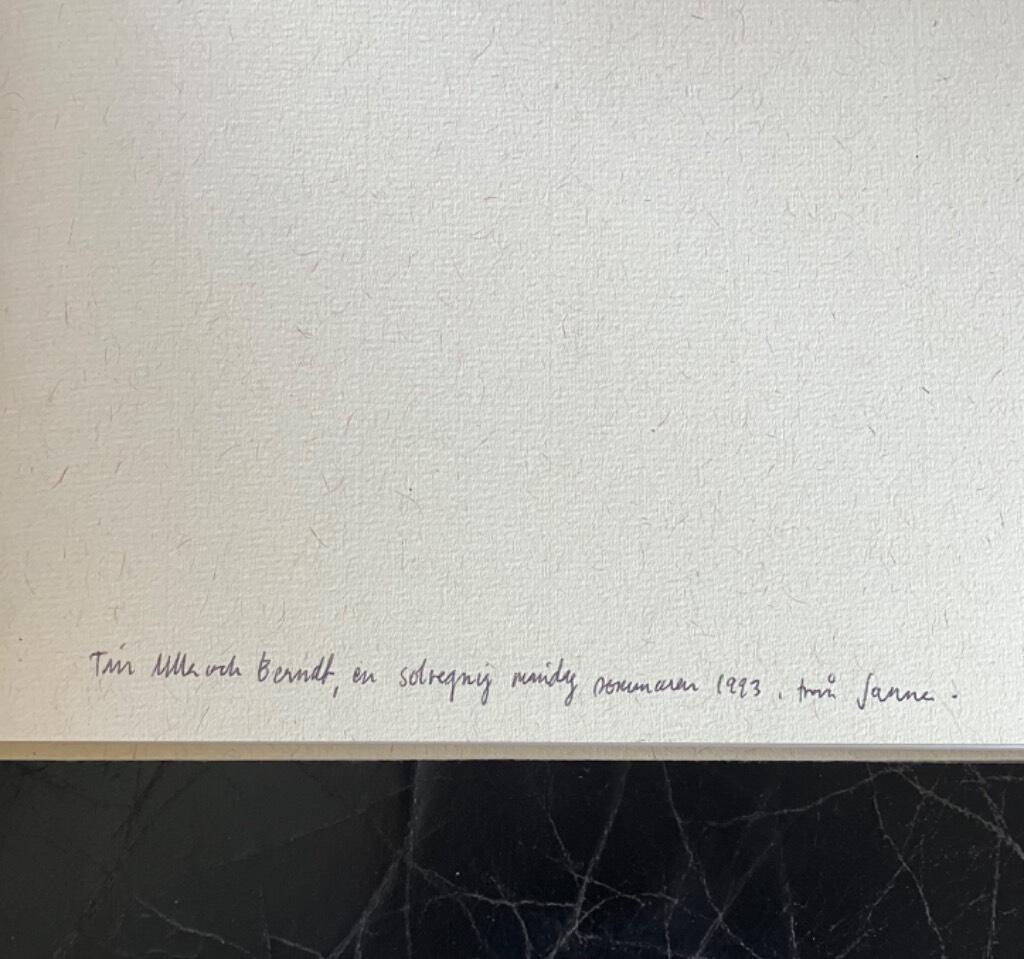 Till Ulla och Berndt, en solregnig måndag sommaren 1993. från Sanne.